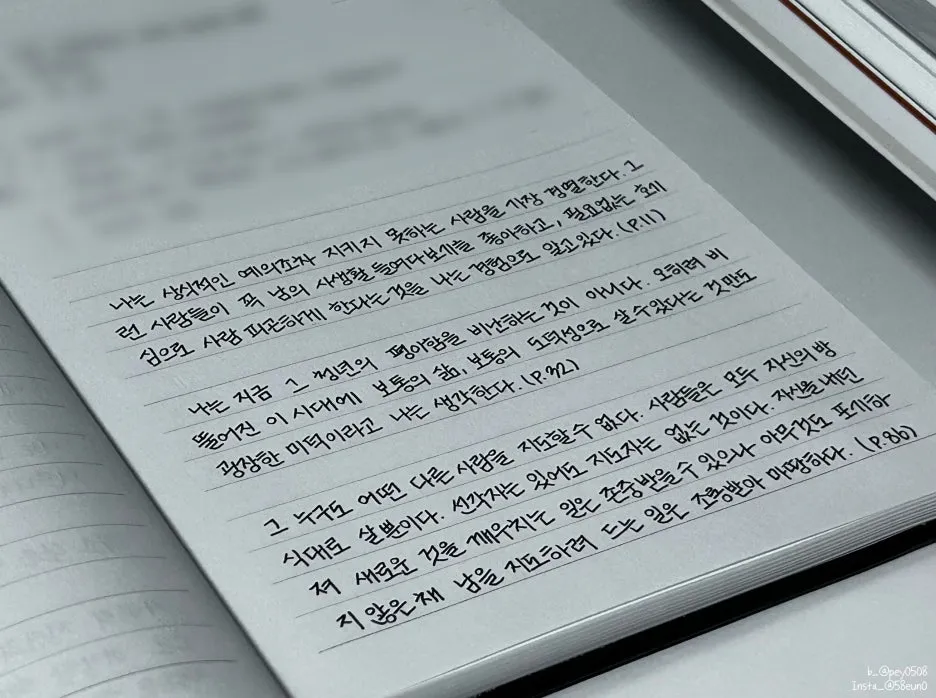 나는 상식적인 예의조차 지키지 못하는 사람을 가장 경멸한다. 그
런 사람들이 꼭 남의 사생활 들여다보기를 좋아하고, 필요없는 호기
심으로 사람 피곤하게 한다는 것을 나는 경험으로 알고있다.(P.11)
나는 지금 그 청년의 평이함을 비난하는 것이 아니다. 오히려 비
뚤어진 이 시대에 보통의 삶, 보통의 도덕성으로 살 수 있다는 것만도
굉장한 미덕이라고 나는 생각한다.(P.32)
그 누구도 어떤 다른 사람을 지도할 수 없다. 사람들은 모두 자신의 방
식대로 살 뿐이다. 선각자는 있어도 지도자는 없는 것이다. 자신을 내던
져 새로운 것을 깨우치는 일은 존중받을 수 있으나 아무것도 포기하
지 않은채 남을 지도하려 드는 일은 조롱받아 마땅하다. (P.86)
b_@pey0508
Insta_@58eun0